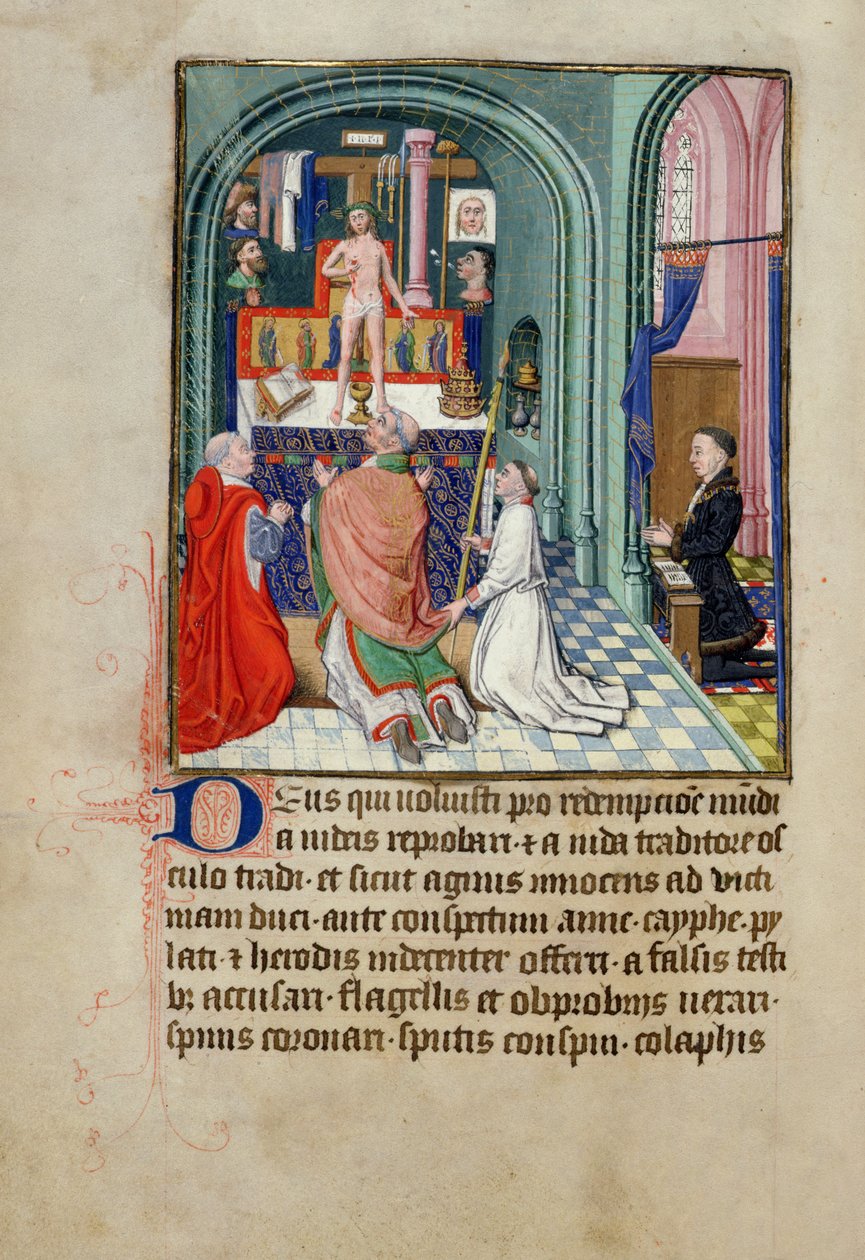 INRI
Deus qui uoluisti pro redempcõe mũdi
a iudeis reprobari · ⁊ a iuda traditore os
culo tradi · et sicut agnus innocens ad victi
mam duci · ante conspectum anne · cayphe · py
lati · ⁊ herodis indecenter offerri · a falsis testi
bꝫ accusari · flagellis et obprobrijs uexari ·
spinis coronari · sputis conspui · colaphis